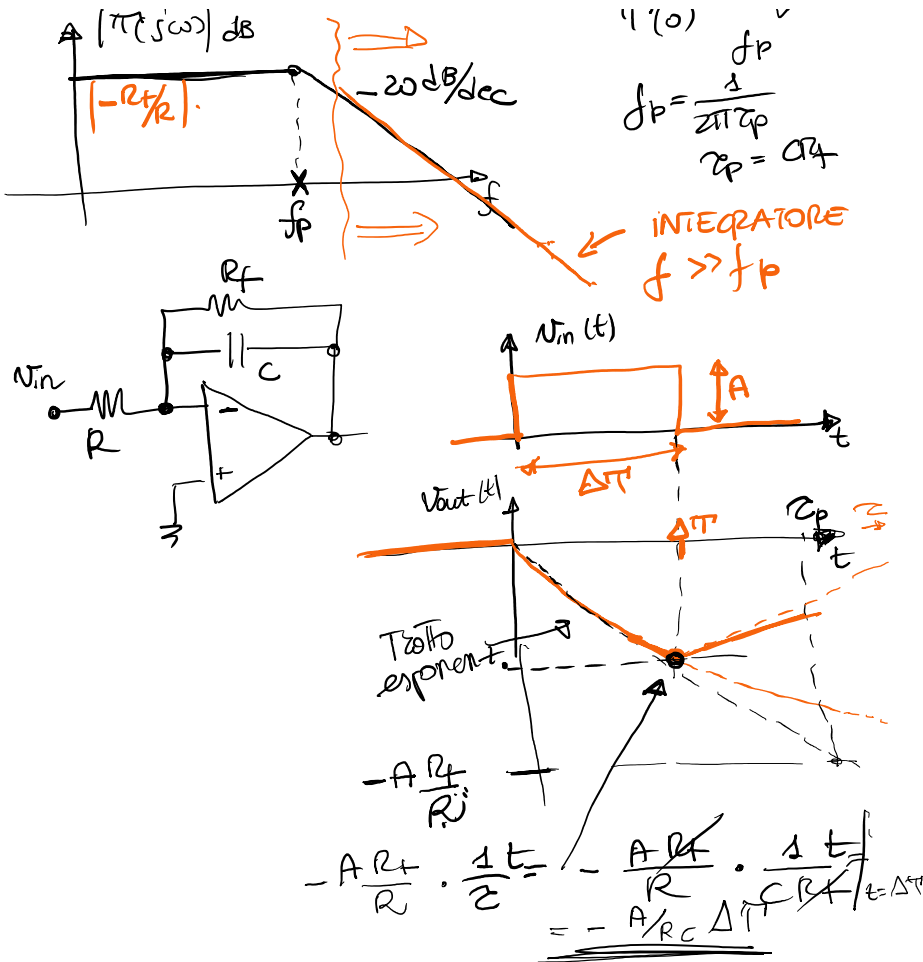 |T(jω)| dB
T(0)
fp
|-Rf/R|.
-20 dB/dec
fp = 1/(2πτp)
τp = CRf
f
fp
INTEGRATORE
f >> fp
Rf
C
vin
R
-
+
vin(t)
A
t
ΔT
vout(t)
ΔT
τp
τ
t
Tratto
esponent.
-A Rf/R
-A Rf/R · 1/τ t = - A Rf/R · 1/(C Rf) t |t=ΔT
= - A/RC ΔT